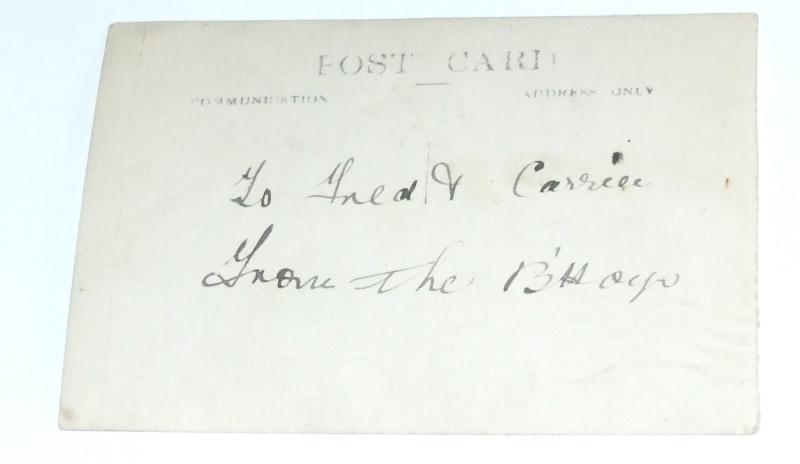 POST CARD
COMMUNICATION ADDRESS ONLY
To Fred & Carrie
From the B'Hoys